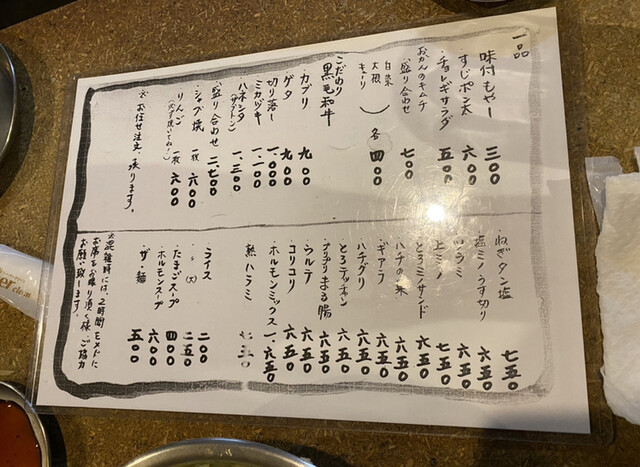 一品
味付もやし 三〇〇
すじポン太 六〇〇
・チョレギサラダ 五〇〇
おかんのキムチ
盛り合わせ 七〇〇
白菜
大根
キューリ
各 四〇〇
こだわり
黒毛和牛
カブリ 九〇〇
ゲタ 九〇〇
切り落し 一,〇〇〇
ミカヅキ 一,一〇〇
・ハネシタ 一,三〇〇
(ザブトン)
・盛り合わせ 二,七〇〇
・シャブ焼 一枚 六〇〇
りんご 一枚 六〇〇
(必ず焼いてね!)
※お任せ注文、承ります。
・ねぎタン塩 七五〇
塩ミノうす切り 六五〇
・ツラミ 六五〇
上ミノ 七五〇
とろミノサンド 六五〇
ハチの巣 六五〇
・ギアラ 六五〇
ハチグリ 六五〇
とろテッチャン 六五〇
まる腸 六五〇
・ウルテ 六五〇
コリコリ 六五〇
・ホルモンミックス 一,六五〇
熟ハラミ
ライス 二〇〇
〃 (大) 二五〇
・たまごスープ 四〇〇
・ホルモンスープ 六〇〇
ザ・麺 五〇〇
※混雑時には、2時間をメドに
お席をお譲り頂く様、ご協力
お願い致します。